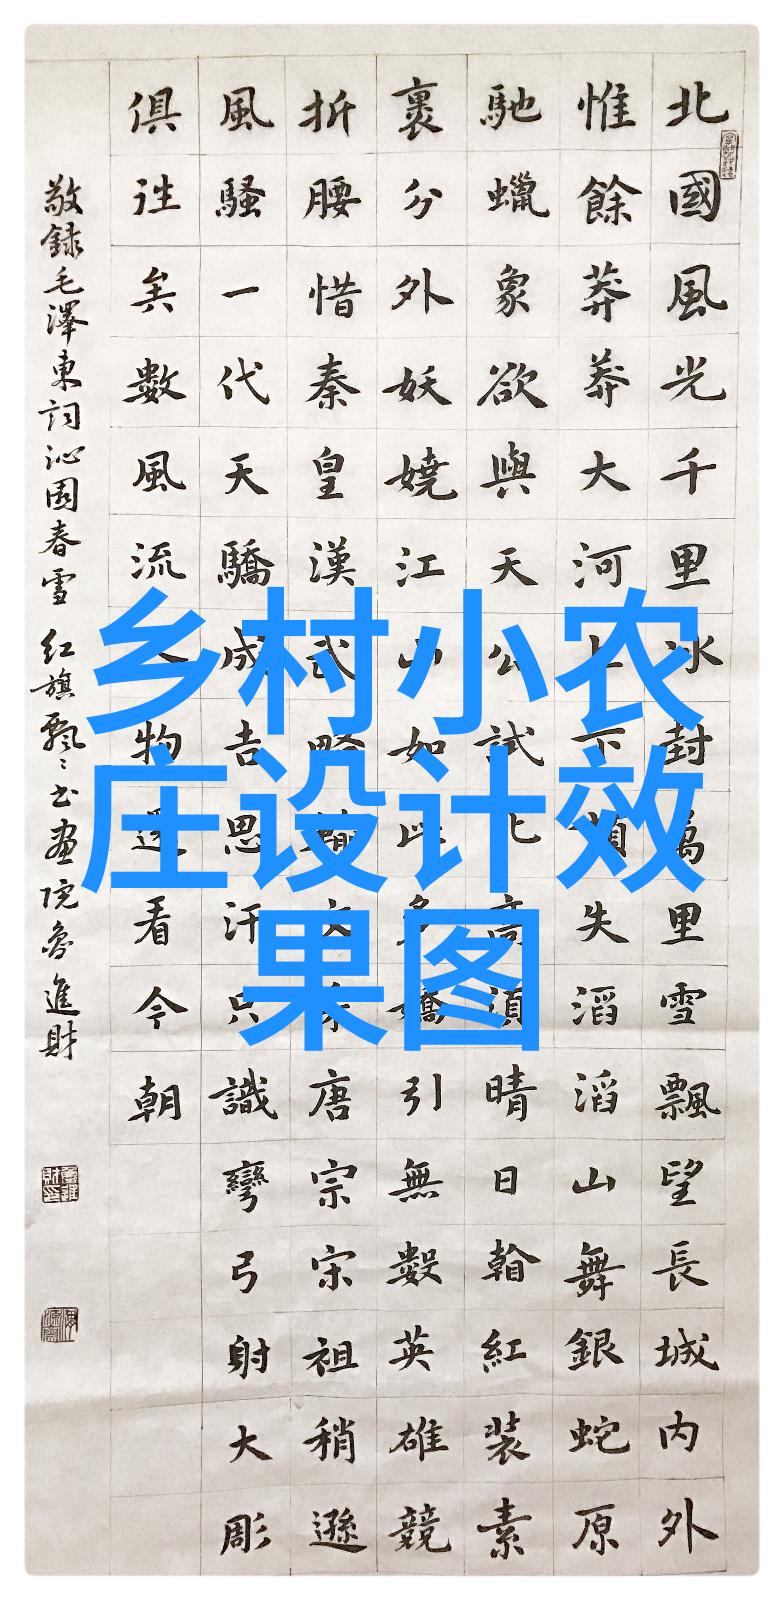 乡村小农
庄设计效
果图
北國風光千里冰封萬里雪飄望長城内外
惟餘莽莽大河上下頓失滔滔山舞銀蛇原
馳蠟象欲與天公試比高須晴日翰紅裝素
裹分外妖嬈江山如此多嬌引無數英雄競
折腰惜秦皇漢武略輸文采唐宗宋祖稍遜
風騷一代天驕成吉思汗只識彎弓射大彫
俱往矣數風流人物還看今朝
敬録毛澤東詞沁園春雪 红旗飄〻书画院魯進財